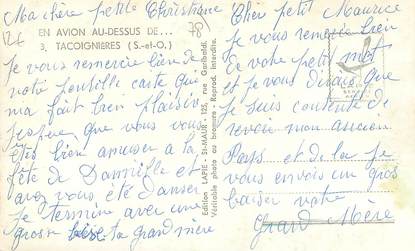 Ma chère petite Christiane
EN AVION AU-DESSUS DE...
3. TACOIGNIERES (S.-et-O.)
78
Je vous remercie bien de
votre gentille carte qui
ma fait bien plaisir
j'espère que vous vous
êtes bien amuser a la
fête de Danielle et
avez vous été danser
je termine avec une
grosse bise ta grand mère
Edition LAPIE - St-MAUR - 125, rue Garibaldi.
Véritable photo au bromure - Reprod. interdite.
Cher petit Maurice
je vous remercie bien
de votre petit mot
et je vous dirais que
je suis contente de
revoir mon ancien
Pays et de la je
vous envois un gros
baiser votre
Grand Mère